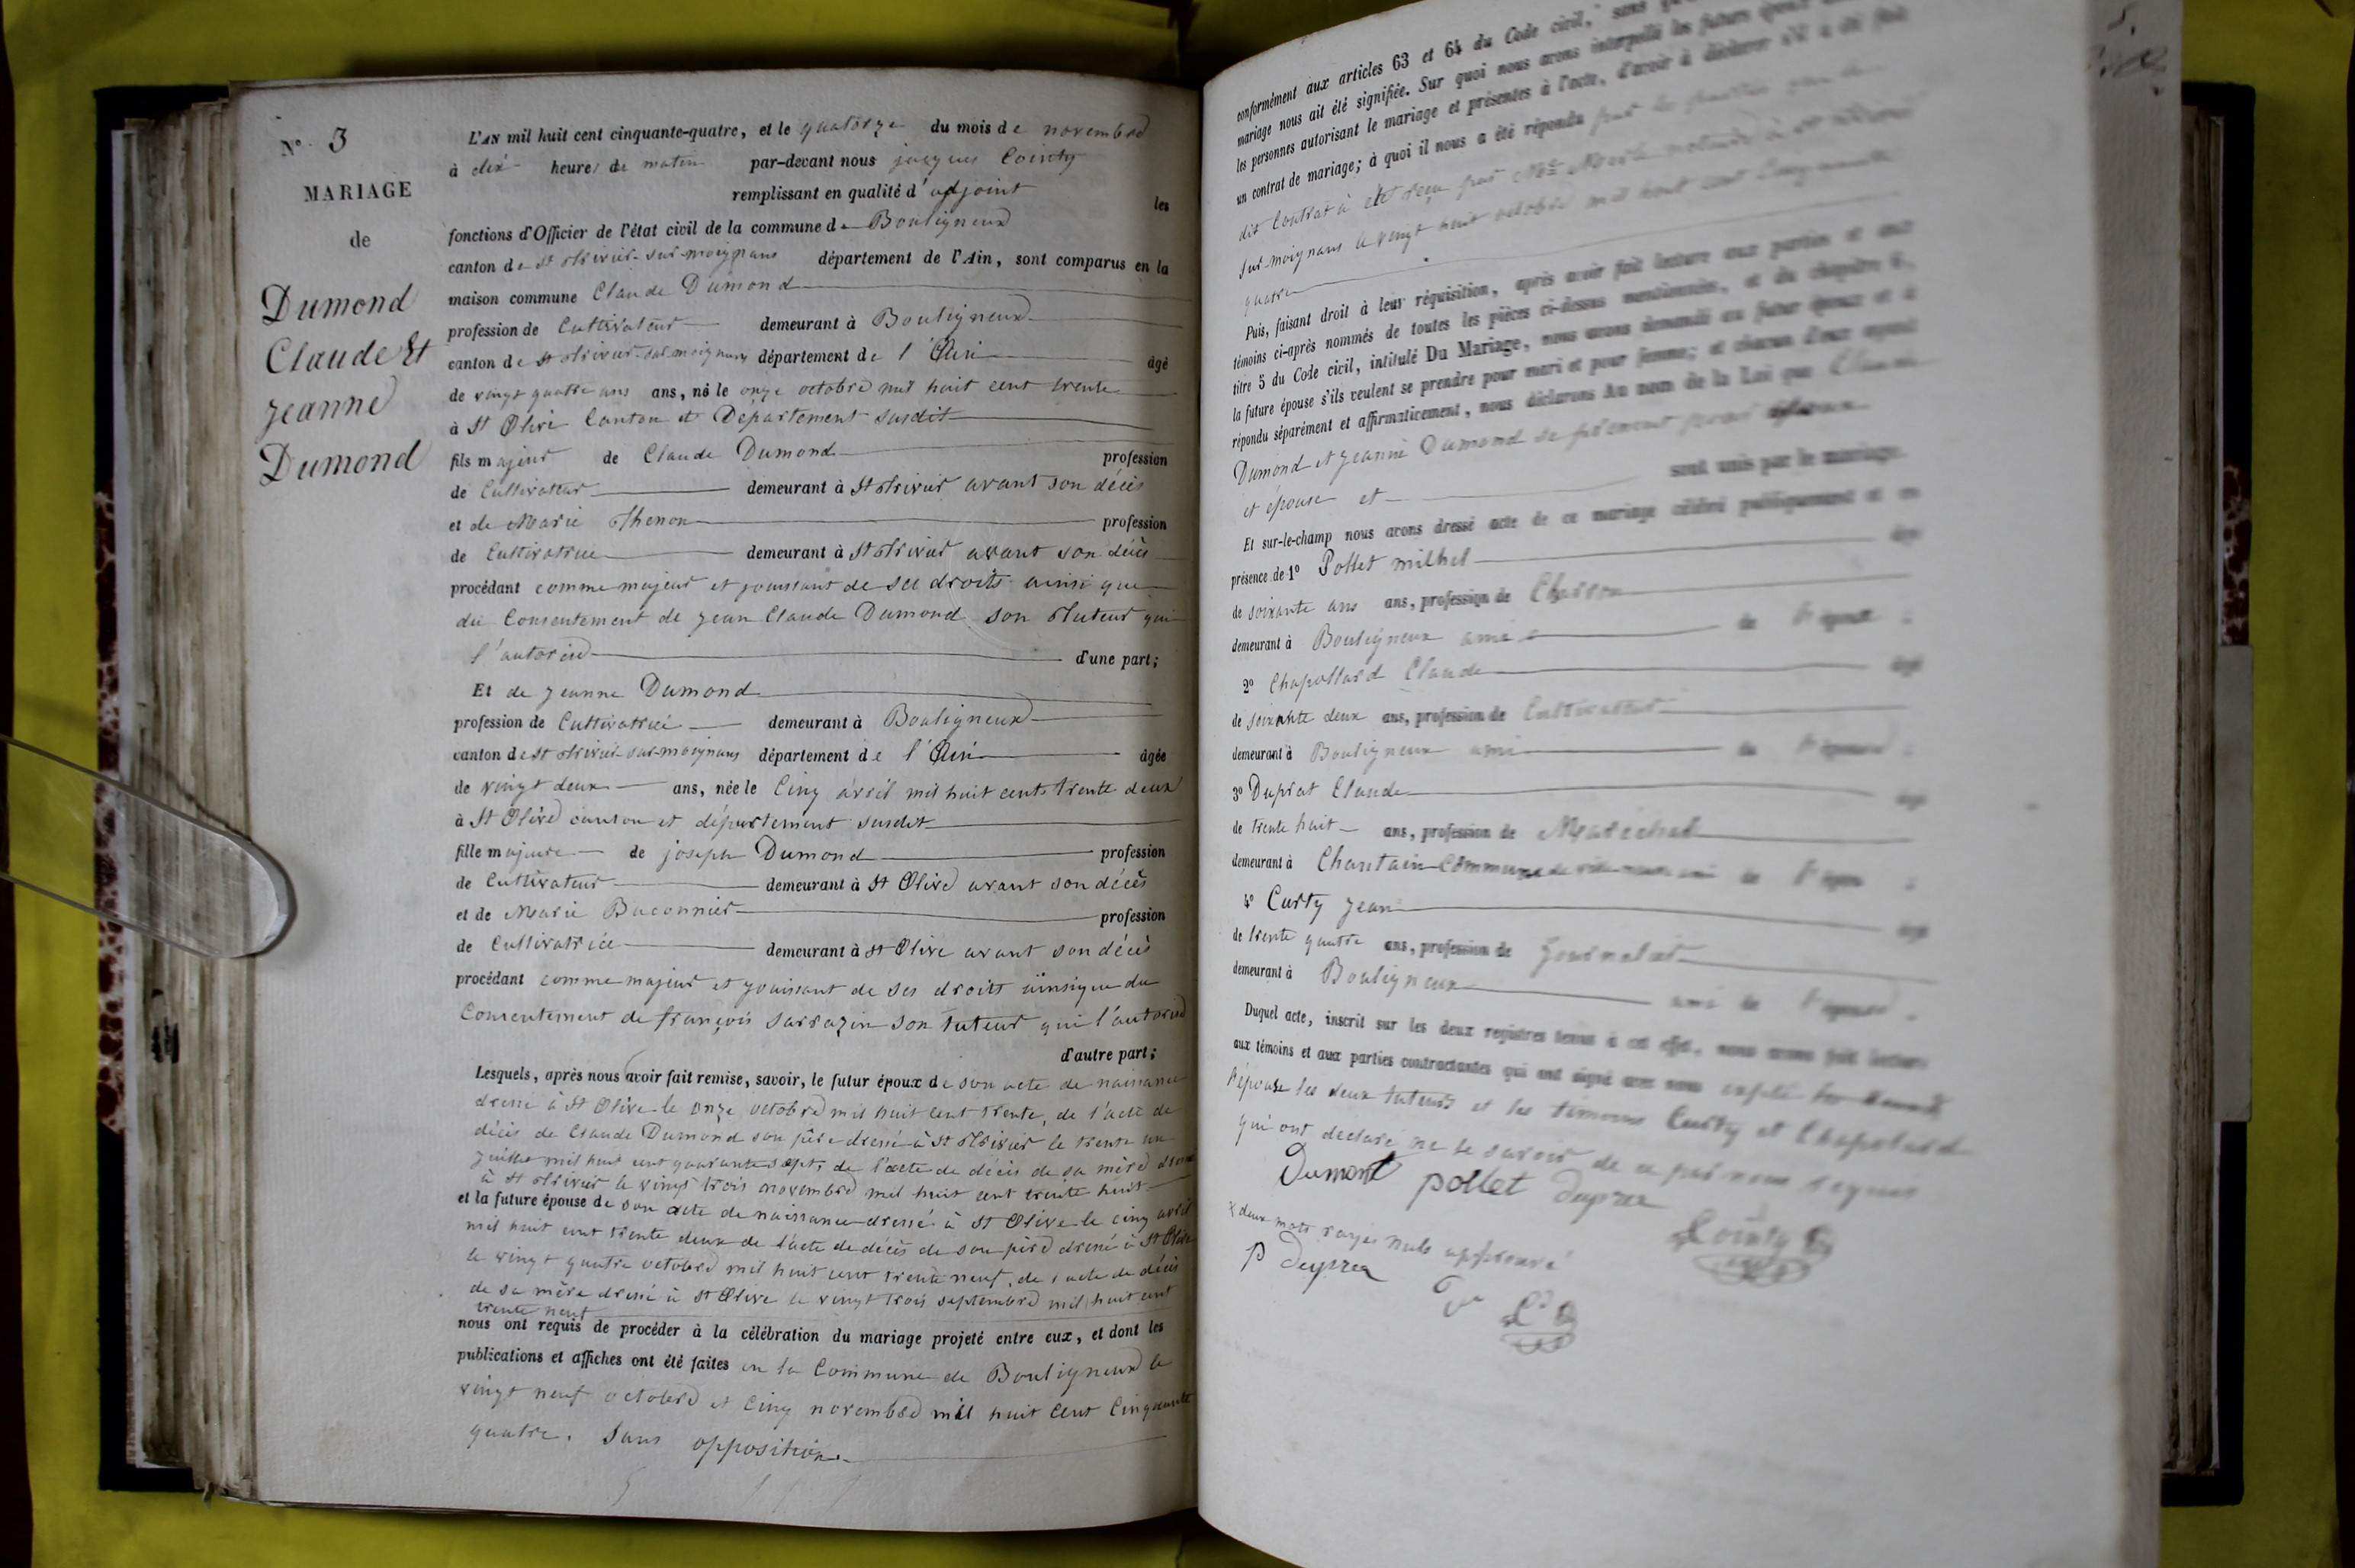 N° 3
MARIAGE
de
Dumond
Claude Et
jeanne
Dumond
L'AN mil huit cent cinquante-quatre, et le quatorze du mois de novembre
à dix heures du matin par-devant nous jacques Cointy
remplissant en qualité d'adjoint les
fonctions d'Officier de l'état civil de la commune de Bouligneux
canton de St Trivier-sur-moignans département de l'Ain, sont comparus en la
maison commune Claude Dumond
profession de Cultivateur demeurant à Bouligneux
canton de St Trivier-sur-moignans département de l'Ain âgé
de vingt quatre ans ans, né le onze octobre mil huit cent trente
à St Olive Canton et Département susdit
fils majeur de Claude Dumond profession
de Cultivateur demeurant à St Trivier avant son décès
et de Marie Thenon profession
de Cultivatrice demeurant à St Trivier avant son décès
procédant comme majeur et jouissant de ses droits ainsi que
du Consentement de jean Claude Dumond son Tuteur qui
l'autorise d'une part;
Et de jeanne Dumond
profession de Cultivatrice demeurant à Bouligneux
canton de St Trivier-sur-moignans département de l'Ain âgée
de vingt deux ans, née le Cinq avril mil huit cent trente deux
à St Olive canton et département susdit
fille majeure de joseph Dumond profession
de Cultivateur demeurant à St Olive avant son décès
et de Marie Baconnier profession
de Cultivatrice demeurant à St Olive avant son décès
procédant comme majeur et jouissant de ses droits ainsique du
Consentement de françois sarrazin son tuteur qui l'autorise
d'autre part;
Lesquels, après nous avoir fait remise, savoir, le futur époux de son acte de naissance
dressé à St Olive le onze octobre mil huit cent trente, de l'acte de
décès de Claude Dumond son père dressé à St Trivier le trente un
juillet mil huit cent quarante sept, de l'acte de décès de sa mère dressé
à St Trivier le vingt trois novembre mil huit cent trente huit
et la future épouse de son acte de naissance dressé à St Olive le cinq avril
mil huit cent trente deux de l'acte de décès de son père dressé à St Olive
le vingt quatre octobre mil huit cent trente neuf, de l'acte de décès
de sa mère dressé à St Olive le vingt trois septembre mil huit cent
trente neuf
nous ont requis de procéder à la célébration du mariage projeté entre eux, et dont les
publications et affiches ont été faites en la Commune de Bouligneux le
vingt neuf octobre et Cinq novembre mil huit Cent Cinquante
quatre. Sans opposition
conformément aux articles 63 et 64 du Code civil, sans
mariage nous ait été signifiée. Sur quoi nous avons interpellé les futurs époux
les personnes autorisant le mariage et présentes à l'acte, d'avoir à déclarer s'il a été fait
un contrat de mariage; à quoi il nous a été répondu
dit Contrat a été reçu par Me notaire à st trivier
sur-moignans le vingt huit octobre mil huit cent cinquante
quatre
Puis, faisant droit à leur réquisition, après avoir fait lecture aux parties et aux
témoins ci-après nommés de toutes les pièces ci-dessus mentionnées, et du chapitre 6,
titre 5 du Code civil, intitulé Du Mariage, nous avons demandé au futur époux et à
la future épouse s'ils veulent se prendre pour mari et pour femme; et chacun d'eux ayant
répondu séparément et affirmativement, nous déclarons Au nom de la Loi que Claude
Dumond et jeanne Dumond se prennent pour époux
et épouse et sont unis par le mariage.
Et sur-le-champ nous avons dressé acte de ce mariage célébré publiquement et en
présence de 1° Pollet milhet âgé
de soixante ans ans, profession de Charron
demeurant à Bouligneux ami de l'époux
2° Chapollard Claude âgé
de soixante deux ans, profession de Cultivateur
demeurant à Bouligneux ami de l'époux
3° Duprat Claude âgé
de trente huit ans, profession de Marechal
demeurant à Chantain Commune de ami de l'époux
4° Curty jean âgé
de trente quatre ans, profession de journalier
demeurant à Bouligneux ami de l'époux
Duquel acte, inscrit sur les deux registres tenus à cet effet, nous avons fait lecture
aux témoins et aux parties contractantes qui ont signé avec nous excepté
l'épouse les deux tuteurs et les témoins Curty et Chapolard
qui ont déclaré ne le savoir de ce par nous requis
Dumont pollet Duprea
Cointy
deux mots rayés nuls approuvé
P Duprea